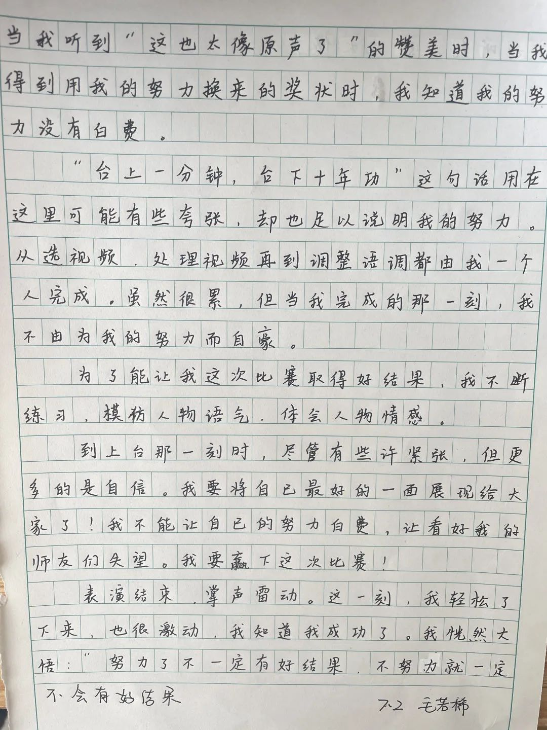 当我听到“这也太像原声了”的赞美时，当我
得到用我的努力换来的奖状时，我知道我的努
力没有白费。
“台上一分钟，台下十年功”这句话用在
这里可能有些夸张，却也足以说明我的努力。
从选视频、处理视频再到调整语调都由我一个
人完成。虽然很累，但当我完成的那一刻，我
不由为我的努力而自豪。
为了能让我这次比赛取得好结果，我不断
练习，模仿人物语气、体会人物情感。
到上台那一刻时，尽管有些许紧张，但更
多的是自信。我要将自己最好的一面展现给大
家了！我不能让自己的努力白费，让看好我的
师友们失望。我要赢下这次比赛！
表演结束，掌声雷动。这一刻，我轻松了
下来，也很激动，我知道我成功了。我恍然大
悟：“努力了不一定有好结果，不努力就一定
不会有好结果
7.2 毛若